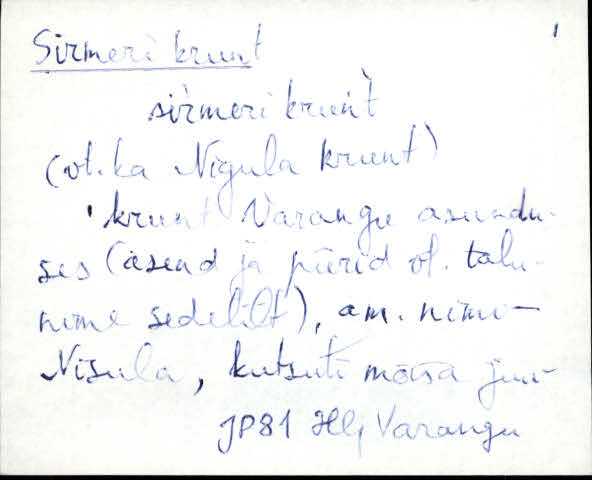 Sirmeri krunt 1
sìrmeri krùnt̀
(vt. ka Nigula krunt)
' krunt Varangu asundu-
ses (asend ja piirid vt. talu-
nime sedelilt), am. nimi –
Nigula, kutsuti mõisa juu-
JP81 Hlj Varangu